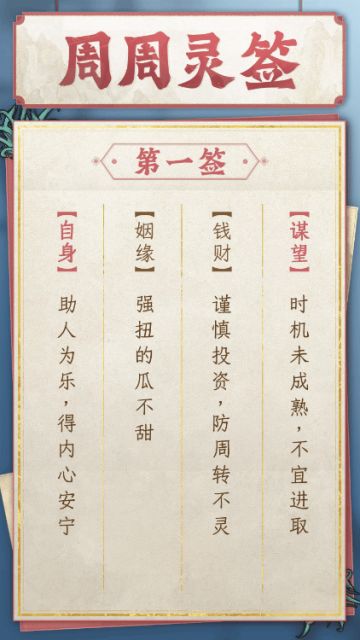 周周灵签
第一签
【谋望】
时机未成熟，不宜进取
【钱财】
谨慎投资，防周转不灵
【姻缘】
强扭的瓜不甜
【自身】
助人为乐，得内心安宁